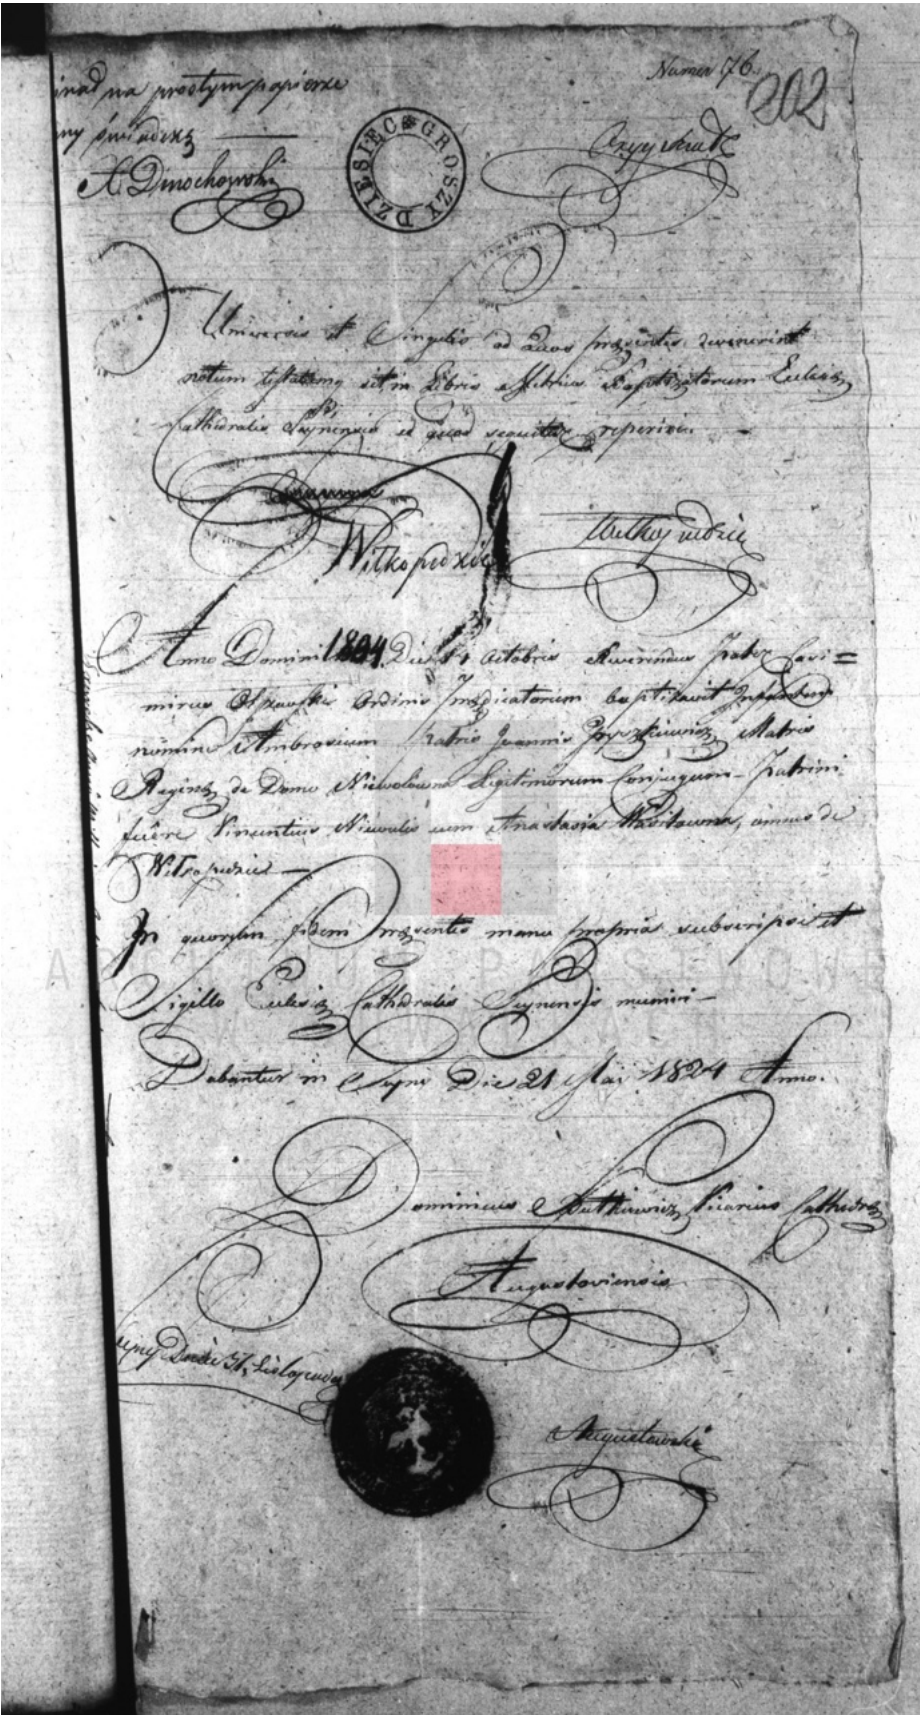 na prostym papierze
Numer 76.
202
ny świadczę
X. Dmochowski
DZIESIEC GROSZY
Universis et Singulis ad Quos præsentes devenerint
notum testatumq sit, in Libris Metrices Baptizatorum Ecclesiæ
Cathedralis Seynensis id quod sequitur reperiri.
Wiłkopedzie
Anno Domini 1804 Die 14 Octobris Reverendus Frater Casi=
mirus Ordinis Prædicatorum baptizavit Infantem
nomine Ambrosium Patris Joannis Matris
Reginæ de Domo Niewolowna Legitimorum Conjugum - Patrini
fuere Vincentius Niewulis cum Anastasia Wasilowna, omnes de
Wiłkopedzie —
In quorum fidem præsentes manu propria subscripsi et
Sigillo Ecclesiæ Cathedralis Seynensis munivi —
Dabantur in Seyny Die 21 Maij 1824 Anno.
Dominicus Vicarius Cathedræ
Augustoviensis
Dnia 31. Listopada
Augustowski